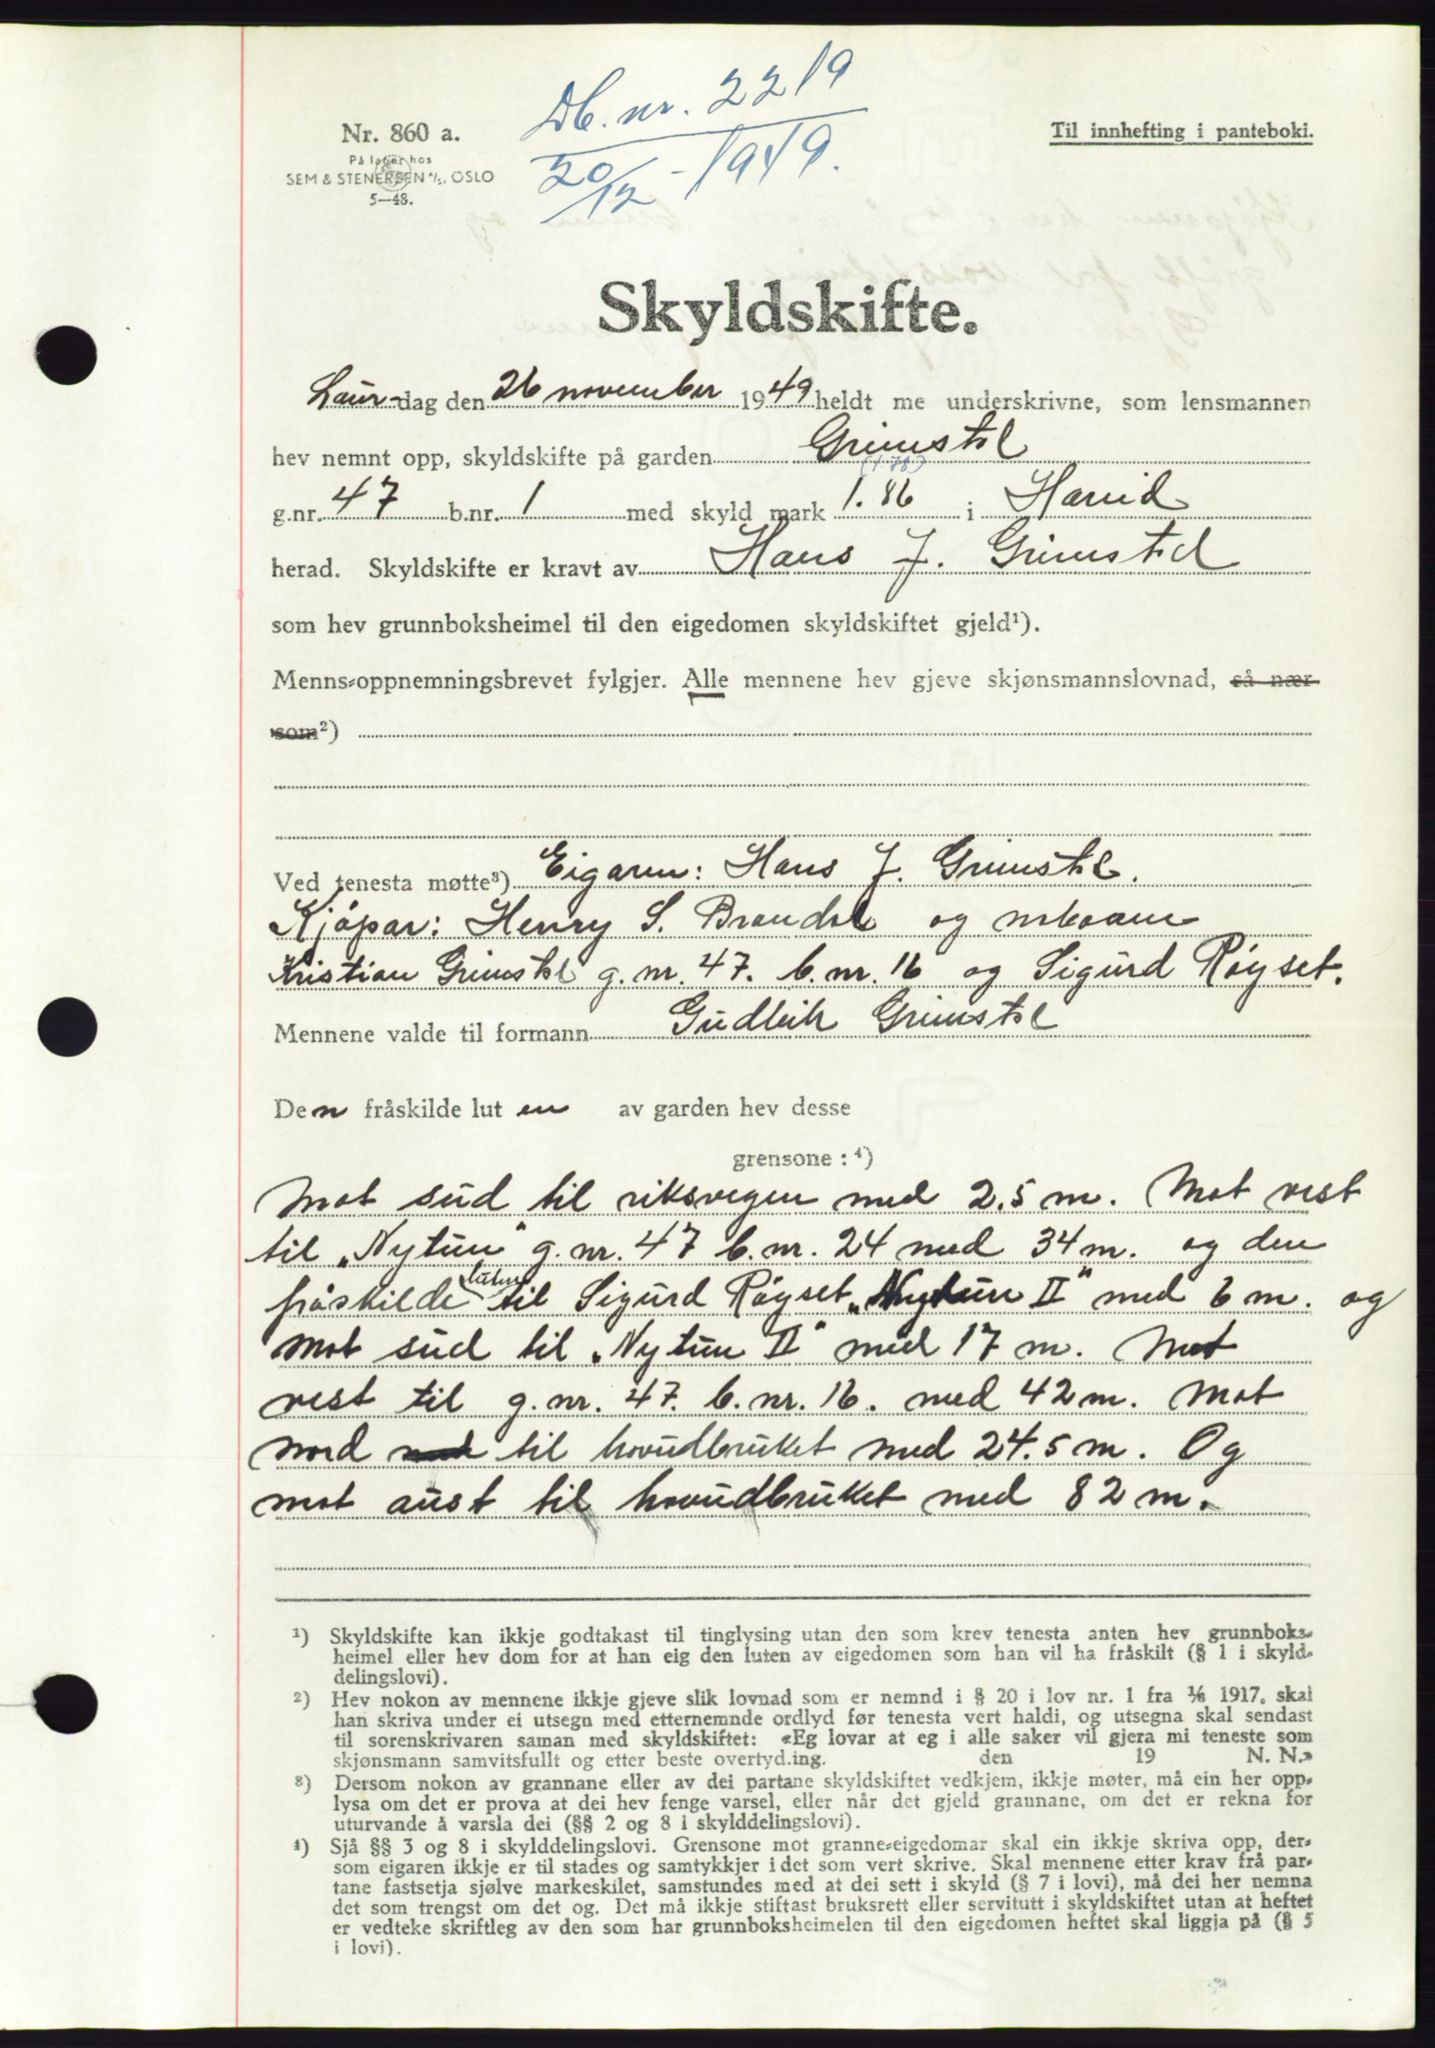 Db. nr. 2219
20/12 - 1949.
Nr. 860 a.
På lager hos
SEM & STENERSEN A/S, OSLO
5—48.
Til innhefting i panteboki.
Skyldskifte.
Laur-dag den 26 november 1949 heldt me underskrivne, som lensmannen
hev nemnt opp, skyldskifte på garden Grimstd
(1.78)
g.nr. 47 b.nr. 1 med skyld mark 1.86 i Hareid
herad. Skyldskifte er kravt av Hans J. Grimstd
som hev grunnboksheimel til den eigedomen skyldskiftet gjeld¹).
Menns-oppnemningsbrevet fylgjer. Alle mennene hev gjeve skjønsmannslovnad, så nær
som²)
Ved tenesta møtte³) Eigaren: Hans J. Grimstd.
Kjöpar: Henry S. Brandal og naboane
Kristian Grimstd g. nr. 47. b. nr. 16 og Sigurd Röyset.
Mennene valde til formann Gudleik Grimstd
Den fråskilde luten av garden hev desse
grensone: ⁴)
Mot sud til riksvegen med 2.5 m. Mot vest
til „Nytun" g. nr. 47 b. nr. 24 med 34 m. og den
fråskilde luten til Sigurd Röyset „Nytun II" med 6 m. og
mot sud til „Nytun II" med 17 m. Mot
vest til g. nr. 47. b. nr. 16. med 42 m. Mot
nord til hovudbruket med 24.5 m. Og
mot aust til hovudbruket med 82 m.
¹) Skyldskifte kan ikkje godtakast til tinglysing utan den som krev tenesta anten hev grunnboks-
heimel eller hev dom for at han eig den luten av eigedomen som han vil ha fråskilt (§ 1 i skyld-
delingslovi).
²) Hev nokon av mennene ikkje gjeve slik lovnad som er nemnd i § 20 i lov nr. 1 fra 1/6 1917, skal
han skriva under ei utsegn med etternemnde ordlyd før tenesta vert haldi, og utsegna skal sendast
til sorenskrivaren saman med skyldskiftet: «Eg lovar at eg i alle saker vil gjera mi teneste som
skjønsmann samvitsfullt og etter beste overtyding. den 19 N. N.»
³) Dersom nokon av grannane eller av dei partane skyldskiftet vedkjem, ikkje møter, må ein her opp-
lysa om det er prova at dei hev fenge varsel, eller når det gjeld grannane, om det er rekna for
uturvande å varsla dei (§§ 2 og 8 i skylddelingslovi).
⁴) Sjå §§ 3 og 8 i skylddelingslovi. Grensone mot granne-eigedomar skal ein ikkje skriva opp, der-
som eigaren ikkje er til stades og samtykkjer i det som vert skrive. Skal mennene etter krav frå par-
tane fastsetja sjølve markeskilet, samstundes med at dei sett i skyld (§ 7 i lovi), må dei her nemna
det som trengst om det og. Det må ikkje stiftast bruksrett eller servitutt i skyldskiftet utan at heftet
er vedteke skriftleg av den som har grunnboksheimelen til den eigedomen heftet skal liggja på (§ 5
i lovi).